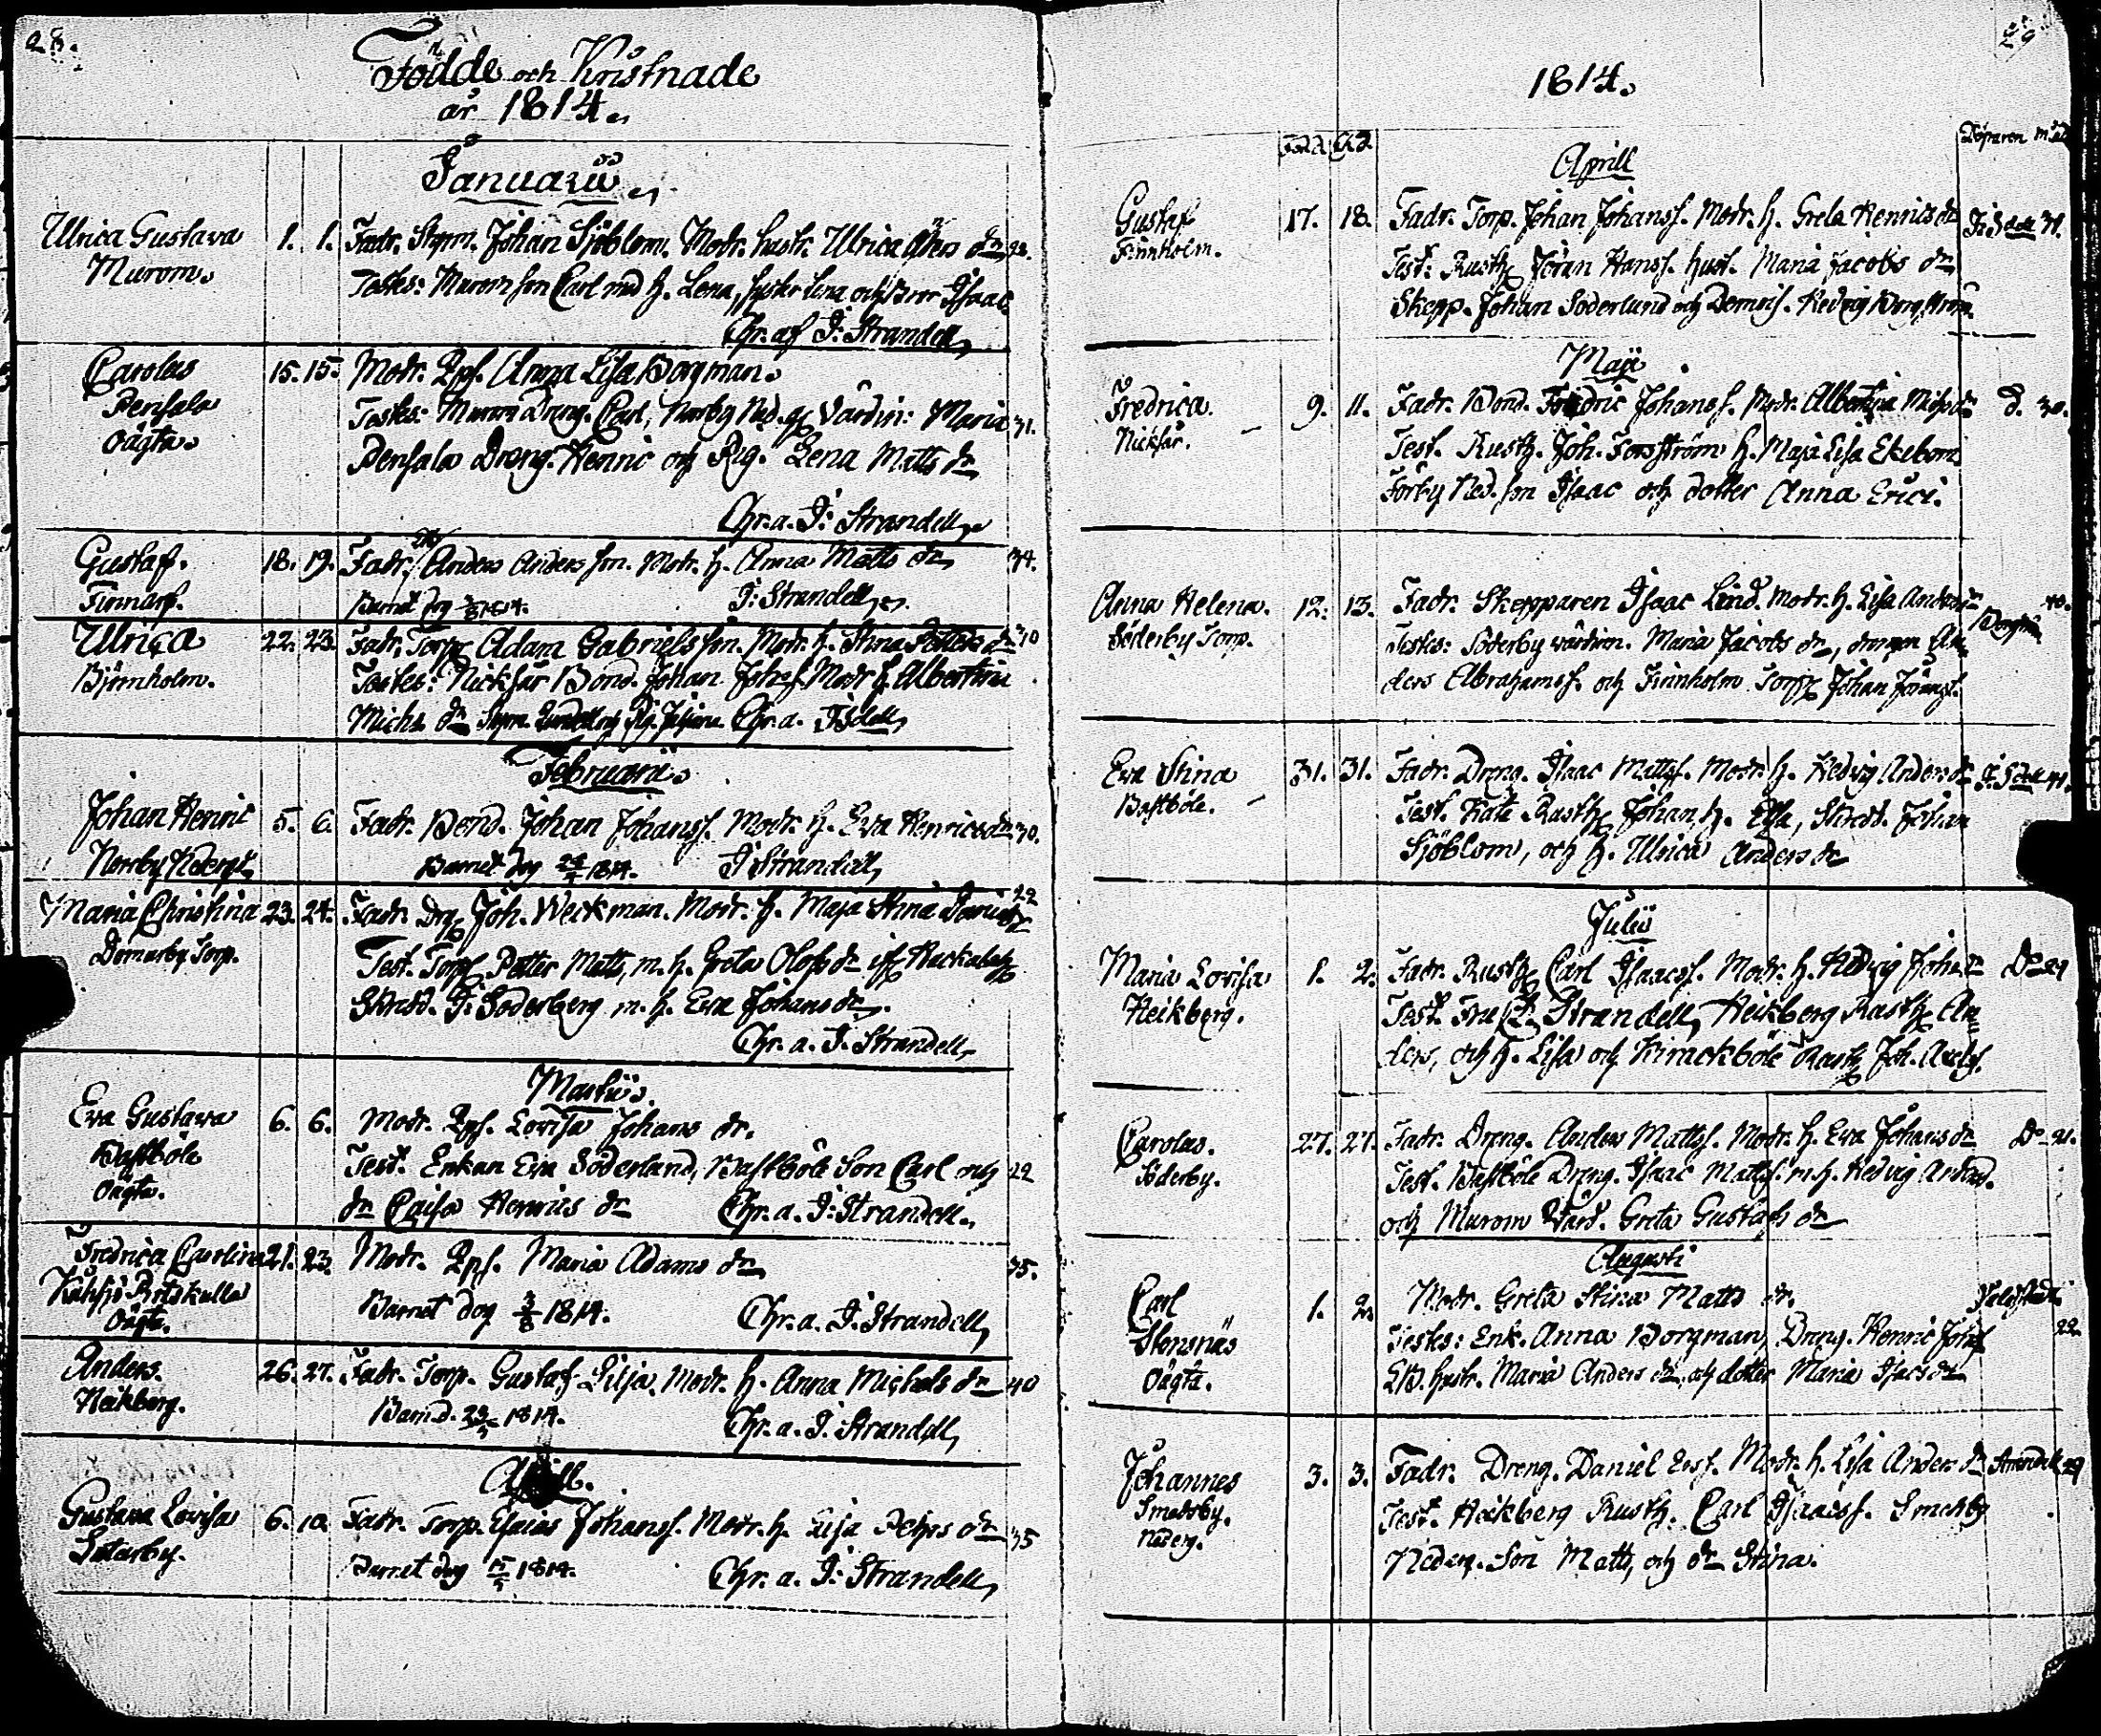 28.
Födde och Kristnade
år 1814.
Januarii
Ulrica Gustava 1. 1. Fadr. Styrm. Johan Sjöblom. Modr. hustr. Ulrica dr
Murom. Testes: Murom son Carl med h. Lena, och Bror Isaac
Chr. af J. Strandell
Carolus 15. 15. Modr. Qpf. Anna Lisa Borgman.
Pensala Testes: Murom Dreng. Carl, Norrby Ned. Värdin: Maria 31.
Oägta Pensala Dreng. Henric och Pig. Lena Matts dr
Chr. a. J. Strandell
Gustaf. 18. 19. Fadr. Anders Anders son. Modr. h. Anna Matts dr 34.
Finnarf. Barnet dog 1814. J. Strandell
Ulrica 22. 23. Fadr. Torp. Adam Gabriels son. Modr. h. Stina dr 30
Björnholm. Testes: Nickfar Bond. Johan Johs. Modr h. Albertina
Michs dr Chr. a. JSdell
Februarii
Johan Henric 5. 6. Fadr. Bond. Johan Johanss. Modr. h. Eva Henrics dr 30.
Norrby Barnet dog 1814. J Strandell
Maria Christina 23. 24. Fadr. Drg Joh. Weckman. Modr. h. Maja Stina dr 22
Domarby Torp. Test. Torp. Petter Matts, m. h. Greta Olofs dr
Skred. J. Söderberg m. h. Eva Johans dr.
Chr. a. J. Strandell
Martii
Eva Gustava 6. 6. Modr. Qpf. Lovisa Johans dr.
Bastböle Test. Enkan Eva Söderlund, Bastböle Son Carl och 22
Oägta. dr Caisa Henrics dr Chr. a. J. Strandell.
Fredrica Carolina 21. 23. Modr. Qpf. Maria Adams dr 35.
Barnet dog 3/8 1814. Chr. a. J. Strandell
Oägta.
Anders. 26. 27. Fadr. Torp. Gustaf Lilja. Modr. h. Anna Michels dr 40
Heikberg. Barn d. 1814. Chr. a. J. Strandell
Aprill.
Gustava Lovisa 6. 10. Fadr. Torp. Esaias Johanss. Modr. h. Lisa Pehrs dr 35
Satarby. Barnet dog 1814. Chr. a. J. Strandell
29
1814.
Födde Chd. Döparen
Aprill
Gustaf 17. 18. Fadr. Torp. Johan Johanss. Modr. h. Greta Henrics dr JSdell 31.
Finnholm. Test: Rusth. Jöran Hanss. hust. Maria Jacobs dr
Skepp. Johan Söderlund och Hedvig
Maji
Fredrica. 9. 11. Fadr. Bond. Fredric Johanss. Modr. Albertina Michs dr D. 30.
Nickfar. Test. Rusth. Joh. Forsström h. Maja Lisa Ekebom
Torby Ned. son Isaac och dotter Anna Erici.
Anna Helena. 12. 13. Fadr. Skepparen Isaac Lind. Modr. h. Lisa Anders dr 40.
Söderby Torp. Testes: Söderby värdinn. Maria Jacobs dr, drengen An
ders Abrahamss. och Finnholm Torp. Johan
Eva Stina 31. 31. Fadr. Dreng. Isaac Mattss. Modr. h. Hedvig Anders dr J. Sdell 41.
Bastböle. Test. Rusth. Johan, h. Elsa, Skred. Johan
Sjöblom, och h. Ulrica Anders dr
Julii
Maria Lovisa 1. 2. Fadr. Rusth. Carl Isaacss. Modr. h. Hedvig Johs dr Do 29
Heikberg. Test. Fru C. Strandell, Heikberg Rusth. An
ders, och h. Lisa och Rusth. Joh.
Carolus. 27. 27. Fadr. Dreng. Anders Mattss. Modr. h. Eva Johans dr Do 21.
Söderby. Test. Bastböle Dreng. Isaac Mattss. m. h. Hedvig Andrsd.
och Murom Värd. Greta Gustafs dr
Augusti
Carl 1. 2. Modr. Greta Stina Matts dr.
Stensnäs Testes: Enk. Anna Borgman, Dreng. Henric 22
Oägta. hustr. Maria Anders dr. och dotter Maria Isacs dr
Johannes 3. 3. Fadr. Dreng. Daniel Ersf. Modr. h. Lisa Anders dr Strandell 29
Smedsby. Test. Heikberg Rusth. Carl Isaacss. Smedsby
Nederg. Nederg. Son Matts, och dr Stina.